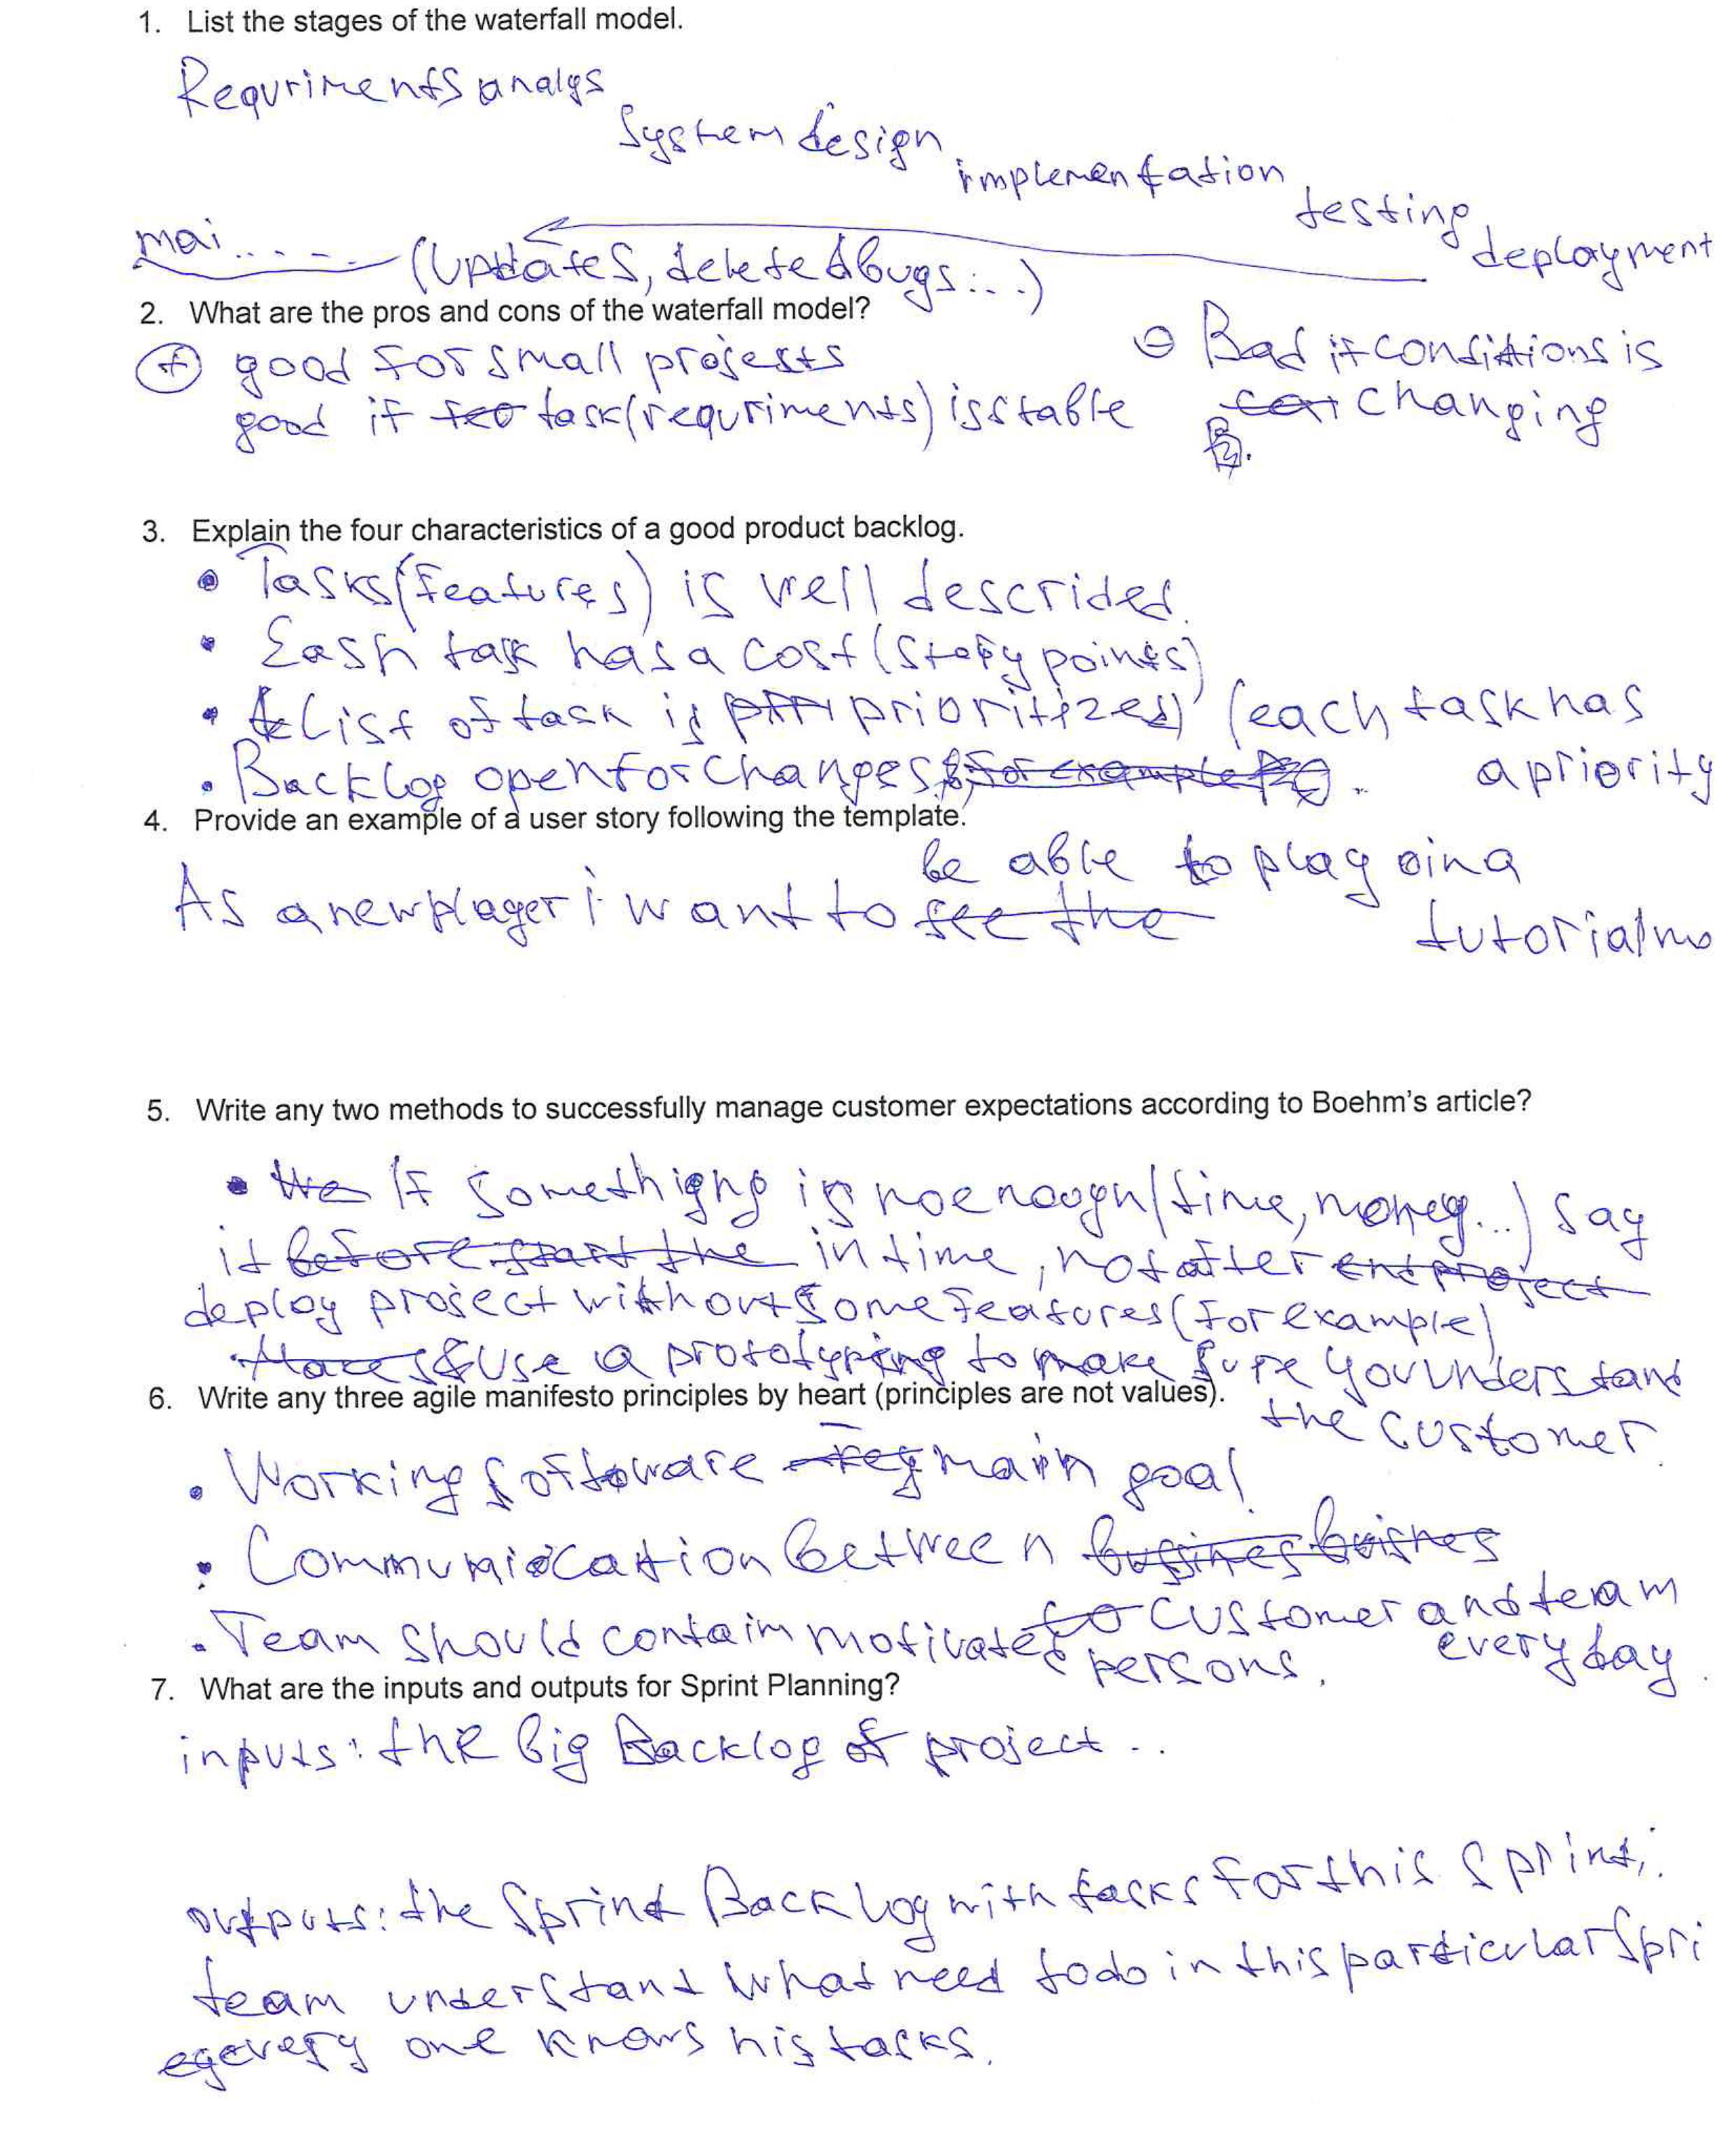 1. List the stages of the waterfall model.
Requriments analys
System design
implementation
testing
deployment
mai........ (Updates, delete bugs...)
2. What are the pros and cons of the waterfall model?
+ good for small projests
good if task(requriments) is stable
- Bad if conditions is
changing
3. Explain the four characteristics of a good product backlog.
• Tasks(features) is well descrided.
• Eash task has a cost (story points)
• List of task is prioritized) (each task has
a priority
• Backlog open for changes.
4. Provide an example of a user story following the template.
be able to play in a
As a new player i want to
tutorial mo
5. Write any two methods to successfully manage customer expectations according to Boehm's article?
• If somethighg is noenougn (time, money...) say
it in time, not after
deploy project without some features (for example)
• Use a prototyping to make sure you understand
the customer.
6. Write any three agile manifesto principles by heart (principles are not values).
• Working software - main goal
• Communication between
customer and team
everyday.
• Team should contain motivated persons.
7. What are the inputs and outputs for Sprint Planning?
inputs: the big Backlog of project ..
outputs: the Sprint Backlog with tasks for this sprint,
team understand what need to do in this particular Spri
every one knows his tasks.